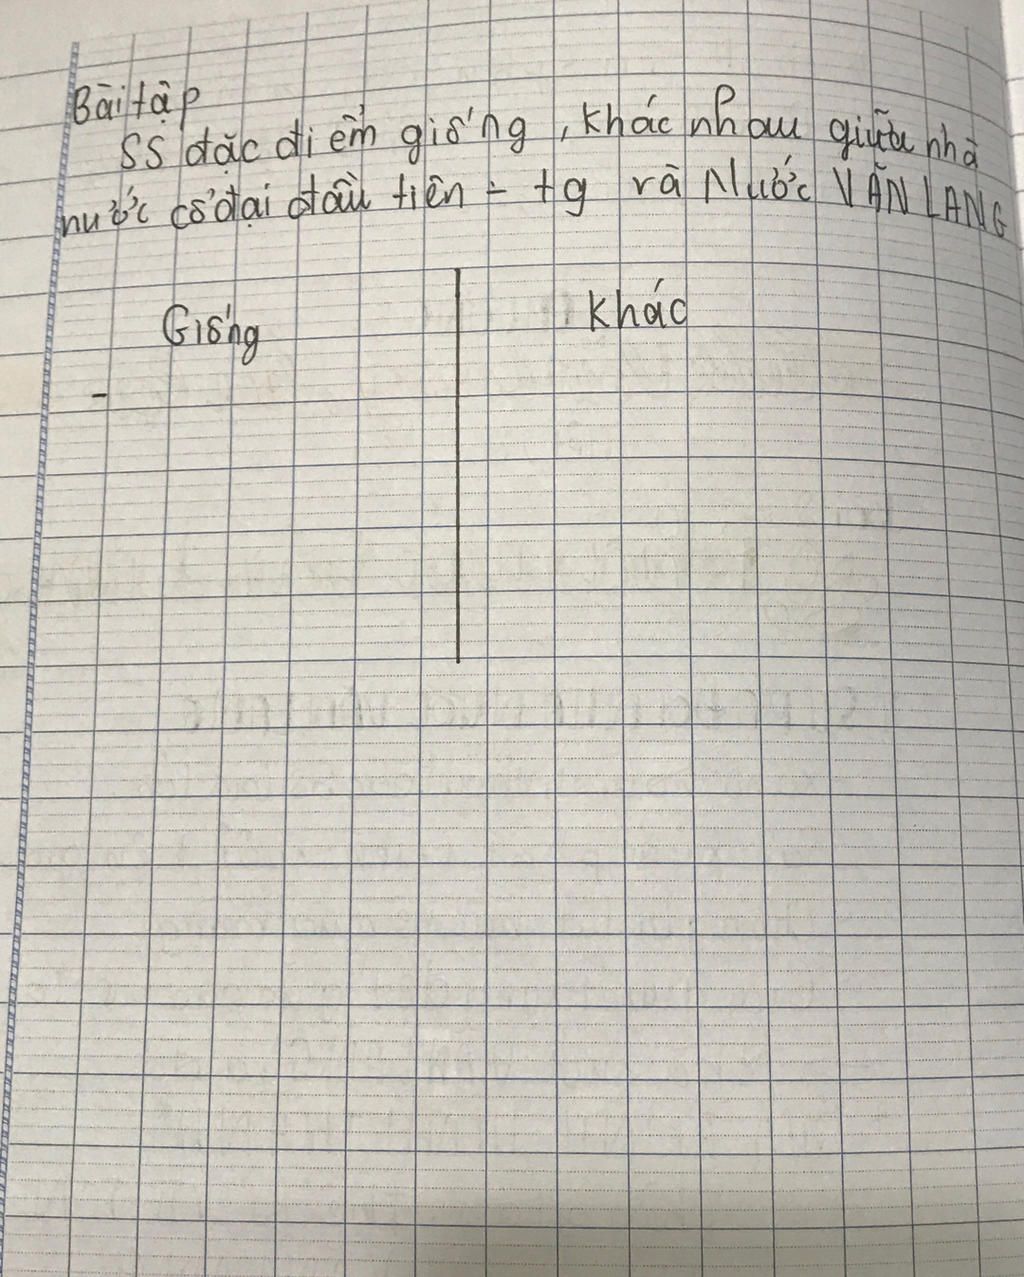 Bài tập
SS đặc điểm giống, khác nhau giữa nhà
nước cổ đại đầu tiên - tg và Nước VĂN LANG
Giống
Khác
-